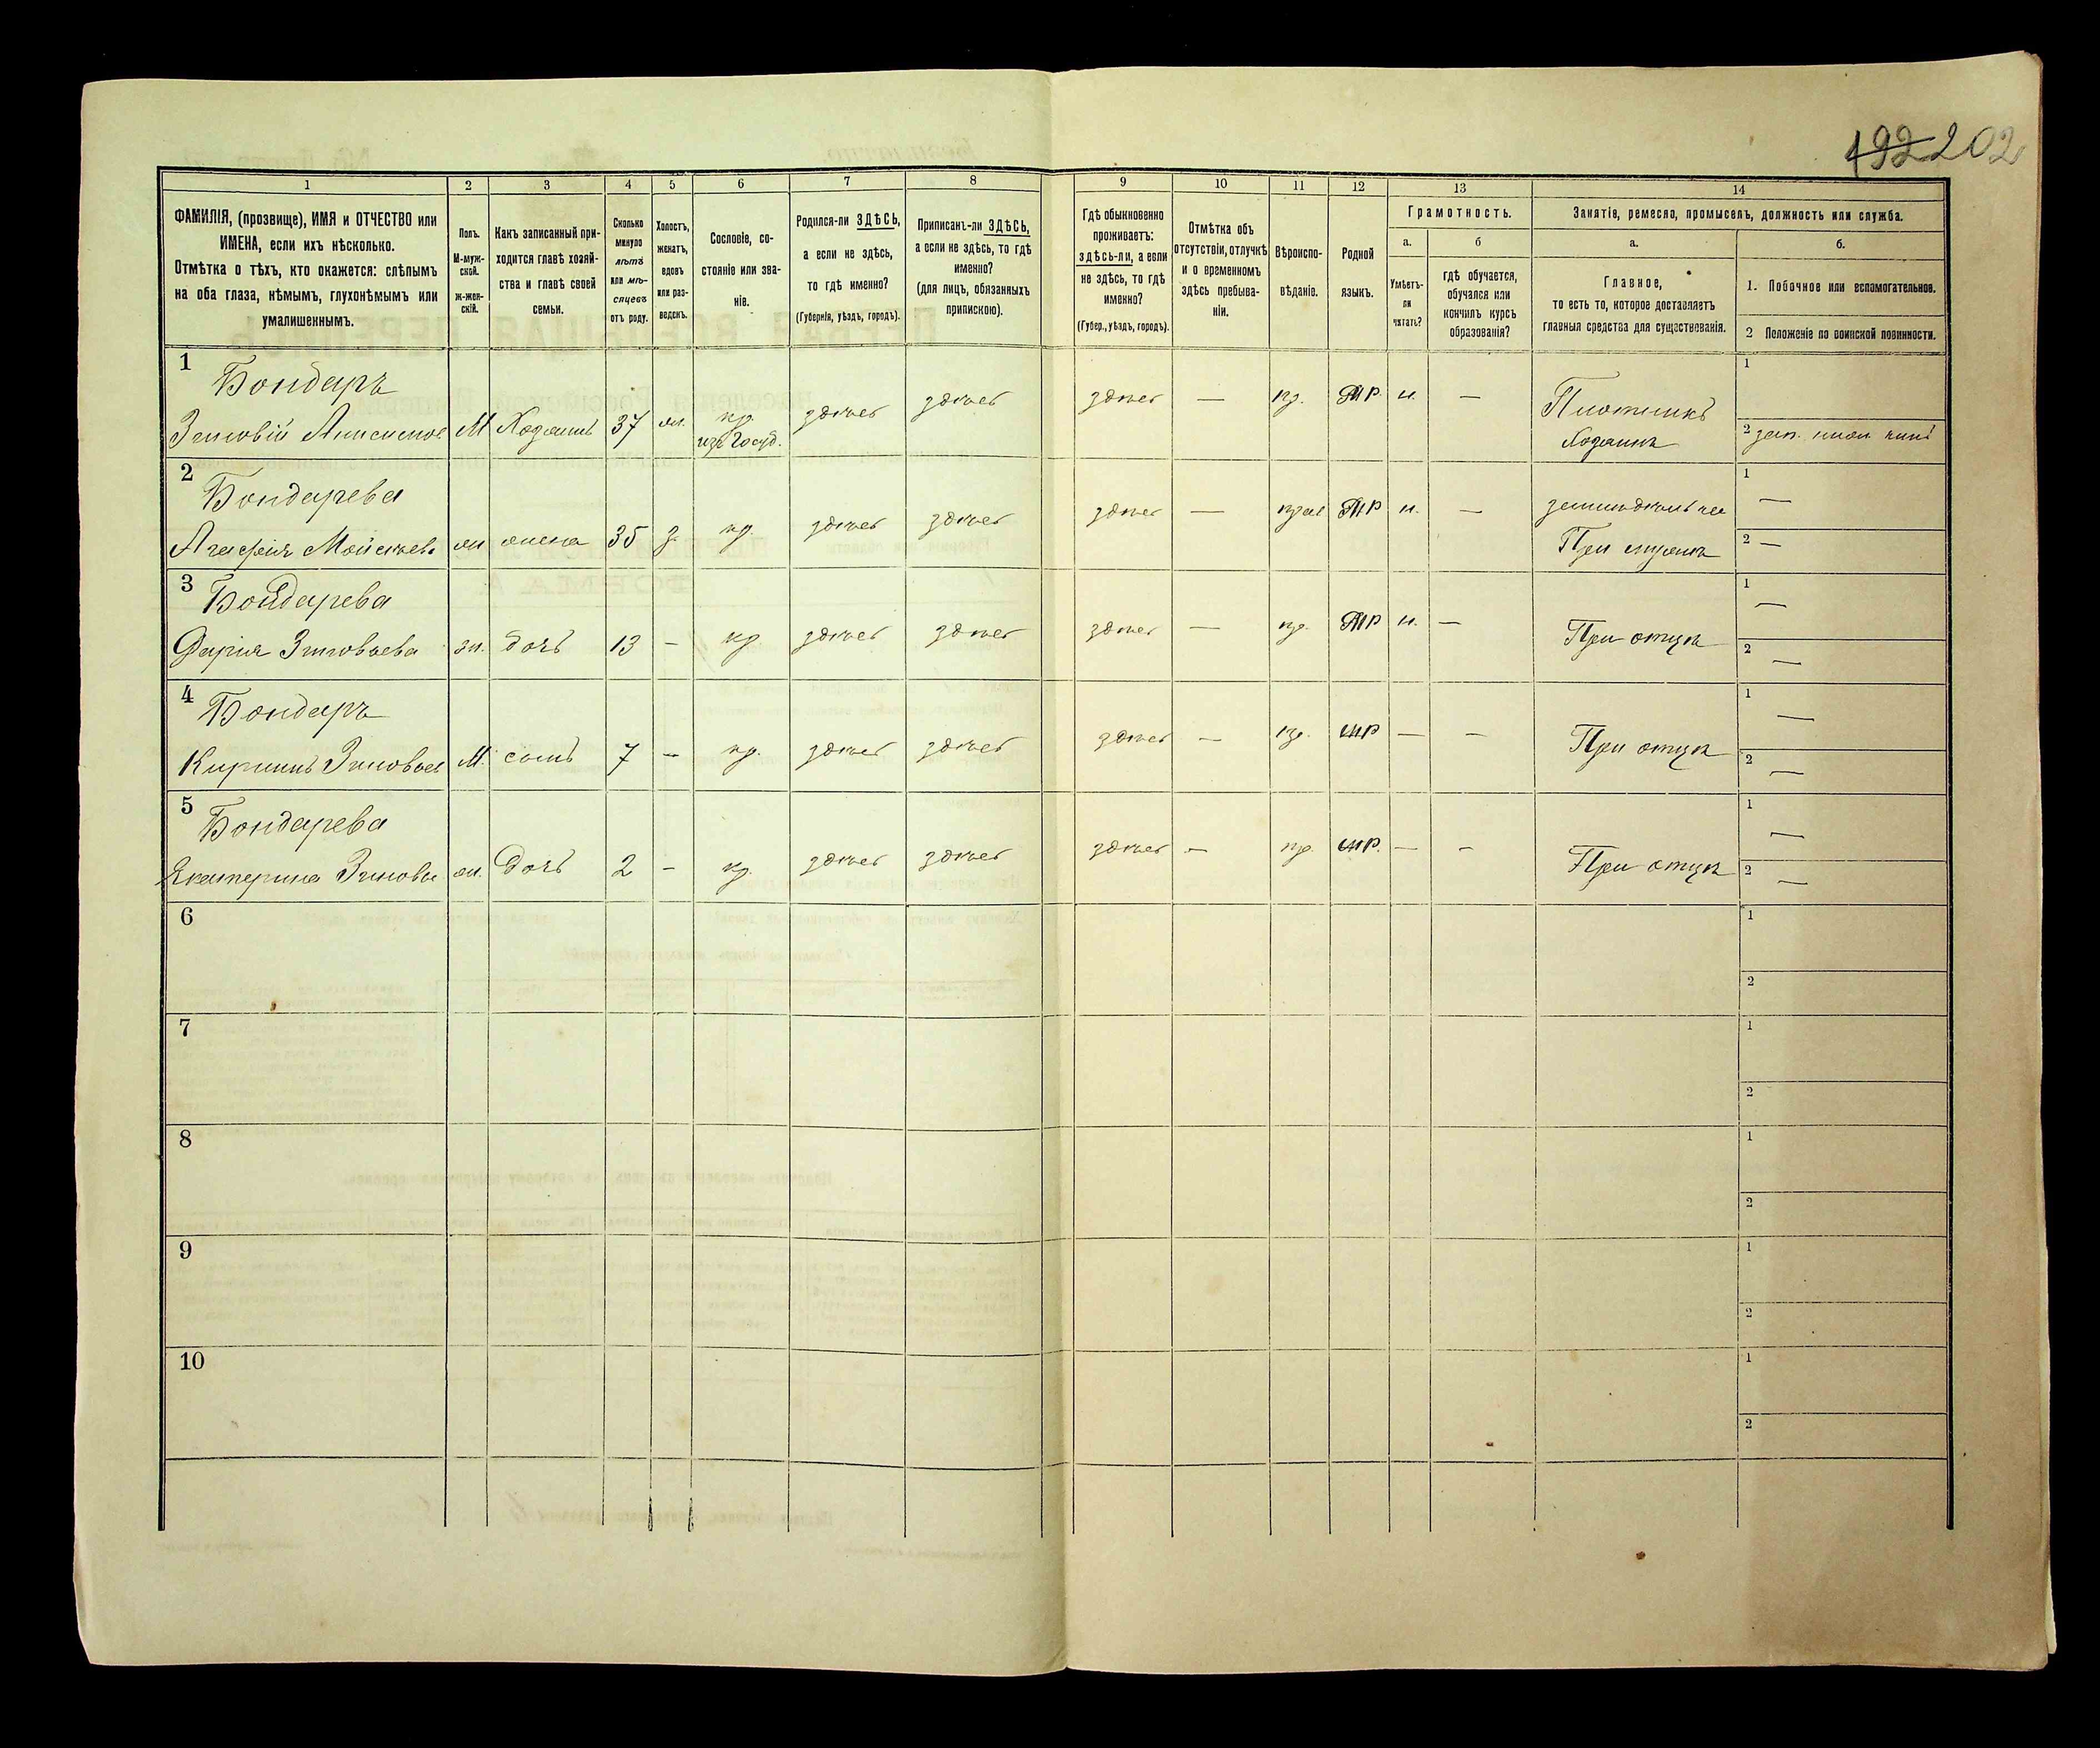 192 202
1 2 3 4 5 6 7 8 9 10 11 12 13 14
ФАМИЛІЯ, (прозвище), ИМЯ и ОТЧЕСТВО или
ИМЕНА, если ихъ нѣсколько.
Отмѣтка о тѣхъ, кто окажется: слѣпымъ
на оба глаза, нѣмымъ, глухонѣмымъ или
умалишеннымъ.
Полъ.
М-муж-
ской.
ж-жен-
скій.
Какъ записанный при-
ходится главѣ хозяй-
ства и главѣ своей
семьи.
Сколько
минуло
лѣтъ
или мѣ-
сяцевъ
отъ роду.
Холостъ,
женатъ,
вдовъ
или раз-
веденъ.
Сословіе, со-
стояніе или зва-
ніе.
Родился-ли ЗДѢСЬ,
а если не здѣсь,
то гдѣ именно?
(Губернія, уѣздъ, городъ).
Приписанъ-ли ЗДѢСЬ,
а если не здѣсь, то гдѣ
именно?
(для лицъ, обязанныхъ
припискою).
Гдѣ обыкновенно
проживаетъ:
здѣсь-ли, а если
не здѣсь, то гдѣ
именно?
(Губер., уѣздъ, городъ).
Отмѣтка объ
отсутствіи, отлучкѣ
и о временномъ
здѣсь пребыва-
ніи.
Вѣроиспо-
вѣданіе.
Родной
языкъ.
Грамотность.
а.
Умѣетъ-
ли
читать?
б
гдѣ обучается,
обучался или
кончилъ курсъ
образованія?
Занятіе, ремесло, промыселъ, должность или служба.
а.
Главное,
то есть то, которое доставляетъ
главныя средства для существованія.
б.
1. Побочное или вспомогательное.
2 Положеніе по воинской повинности.
1
Бондарь
Зиновій Анисимов М Хозяинъ 37 ж. кр. здѣсь здѣсь здѣсь — пр. МР. н. — Плотникъ 1
изъ Госуд. Хозяинъ 2
2
Бондарева
Агафія Мойсѣева ж жена 35 з. кр. здѣсь здѣсь здѣсь — прав МР н. — 1 —
При мужѣ 2 —
3
Бондарева
Дарія Зиновьева ж. дочь 13 – кр. здѣсь здѣсь здѣсь — пр. МР н. — При отцѣ 1 —
2 —
4
Бондарь
Кирилъ Зиновьев М. сынъ 7 – кр. здѣсь здѣсь здѣсь — пр. МР — – При отцѣ 1 —
2 —
5
Бондарева
Екатерина Зиновье ж. Дочь 2 – кр. здѣсь здѣсь здѣсь — пр. МР. — – При отцѣ 1 —
2 —
6 1
2
7 1
2
8 1
2
9 1
2
10 1
2